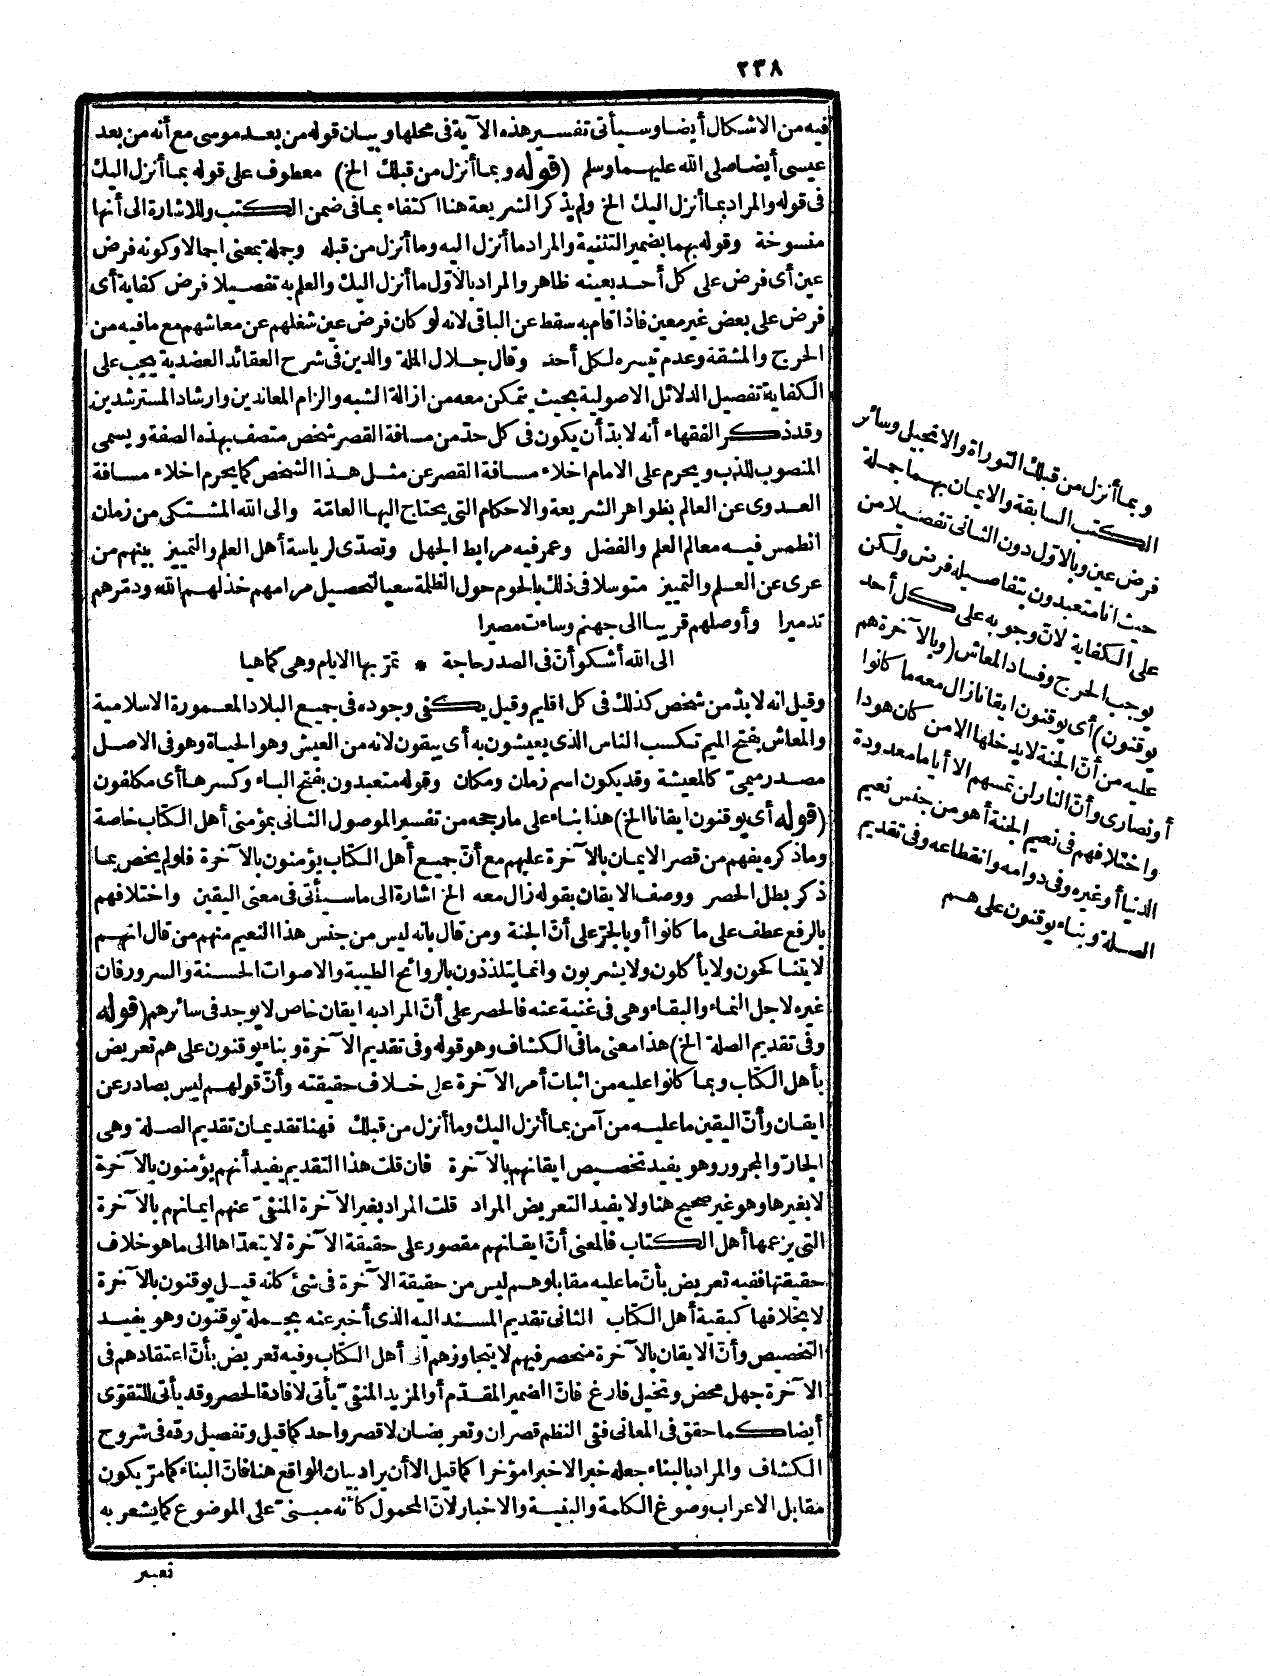 ٢٣٨
فيه من الاشكال أيضا وسيأتى تفسير هذه الآية فى محلها وبيان قوله من بعد موسى مع أنه من بعد
عيسى أيضا صلى الله عليهما وسلم (قوله وبما أنزل من قبلك الخ) معطوف على قوله بما أنزل اليك
فى قوله والمراد بما أنزل اليك الخ ولم يذكر الشريعة هنا اكتفاء بما فى ضمن الكتب وللاشارة الى أنها
منسوخة وقوله بهما بضمير التثنية والمراد ما أنزل اليه وما أنزل من قبله وجملة بمعنى اجمالا وكونه فرض
عين أى فرض على كل أحد بعينه ظاهر والمراد بالاوّل ما أنزل اليك والعلم به تفصيلا فرض كفاية أى
فرض على بعض غير معين فاذا قام به سقط عن الباقى لانه لو كان فرض عين شغلهم عن معاشهم مع ما فيه من
الحرج والمشقة وعدم تيسره لكل أحد وقال جلال الملة والدين فى شرح العقائد العضدية يجب على
الكفاية تفصيل الدلائل الاصولية بحيث يتمكن معه من ازالة الشبه والزام المعاندين وارشاد المسترشدين
وقد ذكر الفقهاء أنه لابدّ أن يكون فى كل حدّ من مسافة القصر شخص متصف بهذه الصفة ويسمى
المنصوب للذب ويحرم على الامام اخلاء مسافة القصر عن مثل هذا الشخص كما يحرم اخلاء مسافة
العدوى عن العالم بظواهر الشريعة والاحكام التى يحتاج اليها العامّة والى الله المشتكى من زمان
انطمس فيه معالم العلم والفضل وعمر فيه مرابط الجهل وتصدّى لرياسة أهل العلم والتمييز بينهم من
عرى عن العلم والتمييز متوسلا فى ذلك بالحوم حول الظلمة سعيا لتحصيل مرامهم خذلهم الله ودمّرهم
تدميرا وأوصلهم قريبا الى جهنم وساءت مصيرا
الى الله أشكو أنّ فى الصدر حاجة * تمرّ بها الايام وهى كما هيا
وقيل انه لابدّ من شخص كذلك فى كل اقليم وقيل يكفى وجوده فى جميع البلاد المعمورة الاسلامية
والمعاش بفتح الميم تكسب الناس الذى يعيشون به أى يبقون لانه من العيش وهو الحياة وهو فى الاصل
مصدر ميمىّ كالمعيشة وقد يكون اسم زمان ومكان وقوله متعبدون بفتح الباء وكسرها أى مكلفون
(قوله أى يوقنون ايقانا الخ) هذا بناء على ما رجحه من تفسير الموصول الثانى بمؤمنى أهل الكتاب خاصة
وما ذكره يفهم من قصر الايمان بالآخرة عليهم مع أنّ جميع أهل الكتاب يؤمنون بالآخرة فلو لم يخص بما
ذكر بطل الحصر ووصف الايقان بقوله زال معه الخ اشارة الى ما سيأتى فى معنى اليقين واختلافهم
بالرفع عطف على ما كانوا أو بالجرّ على أنّ الجنة ومن قال بانه ليس من جنس هذا النعيم منهم من قال انهم
لا يتناكحون ولا يأكلون ولا يشربون وانما يتلذذون بالروائح الطيبة والاصوات الحسنة والسرور فان
غيره لاجل النماء والبقاء وهى فى غنية عنه فالحصر على أنّ المراد به ايقان خاص لا يوجد فى سائرهم (قوله
وفى تقديم الصلة الخ) هذا معنى ما فى الكشاف وهو قوله وفى تقديم الآخرة وبناء يوقنون على هم تعريض
بأهل الكتاب وبما كانوا عليه من اثبات أمر الآخرة على خلاف حقيقته وأنّ قولهم ليس بصادر عن
ايقان وأنّ اليقين ما عليه من آمن بما أنزل اليك وما أنزل من قبلك فهنا تقديمان تقديم الصلة وهى
الجارّ والمجرور وهو يفيد تخصيص ايقانهم بالآخرة فان قلت هذا التقديم يفيد أنهم يؤمنون بالآخرة
لا بغيرها وهو غير صحيح هنا ولا يفيد التعريض المراد قلت المراد بغير الآخرة المنفىّ عنهم ايمانهم بالآخرة
التى يزعمها أهل الكتاب فالمعنى أنّ ايقانهم مقصور على حقيقة الآخرة لا يتعدّاها الى ما هو خلاف
حقيقتها ففيه تعريض بأنّ ما عليه مقابلوهم ليس من حقيقة الآخرة فى شئ كانه قيل يوقنون بالآخرة
لا بخلافها كبقية أهل الكتاب الثانى تقديم المسند اليه الذى أخبر عنه بجملة يوقنون وهو يفيد
التخصيص وأنّ الايقان بالآخرة منحصر فيهم لا يتجاوزهم الى أهل الكتاب وفيه تعريض بأنّ اعتقادهم فى
الآخرة جهل محض وتخيل فارغ فانّ الضمير المقدّم أو المزيد المنفىّ يأتى لافادة الحصر وقد يأتى للتقوى
أيضا كما حقق فى المعانى ففى النظم قصران وتعريضان لا قصر واحد كما قيل وتفصيل ردّه فى شروح
الكشاف والمراد بالبناء جعله خبرا لاخبرا مؤخرا كما قيل الا أن يراد بيان الواقع هنا فانّ البناء كما مرّ يكون
مقابل الاعراب وصوغ الكلمة والبنية والاخبار لانّ المحمول كأنه مبنىّ على الموضوع كما يشعر به
تعبير
وبما أنزل من قبلك التوراة والانجيل وسائر
الكتب السابقة والايمان بهما جملة
فرض عين وبالاوّل دون الثانى تفصيلا من
حيث انا متعبدون بتفاصيله فرض ولكن
على الكفاية لانّ وجوبه على كل أحد
يوجب الحرج وفساد المعاش (وبالآخرة هم
يوقنون) أى يوقنون ايقانا زال معه ما كانوا
عليه من أنّ الجنة لا يدخلها الا من كان هودا
أو نصارى وأنّ النار لن تمسهم الا أياما معدودة
واختلافهم فى نعيم الجنة أهو من جنس نعيم
الدنيا أو غيره وفى دوامه وانقطاعه وفى تقديم
الصلة وبناء يوقنون على هم